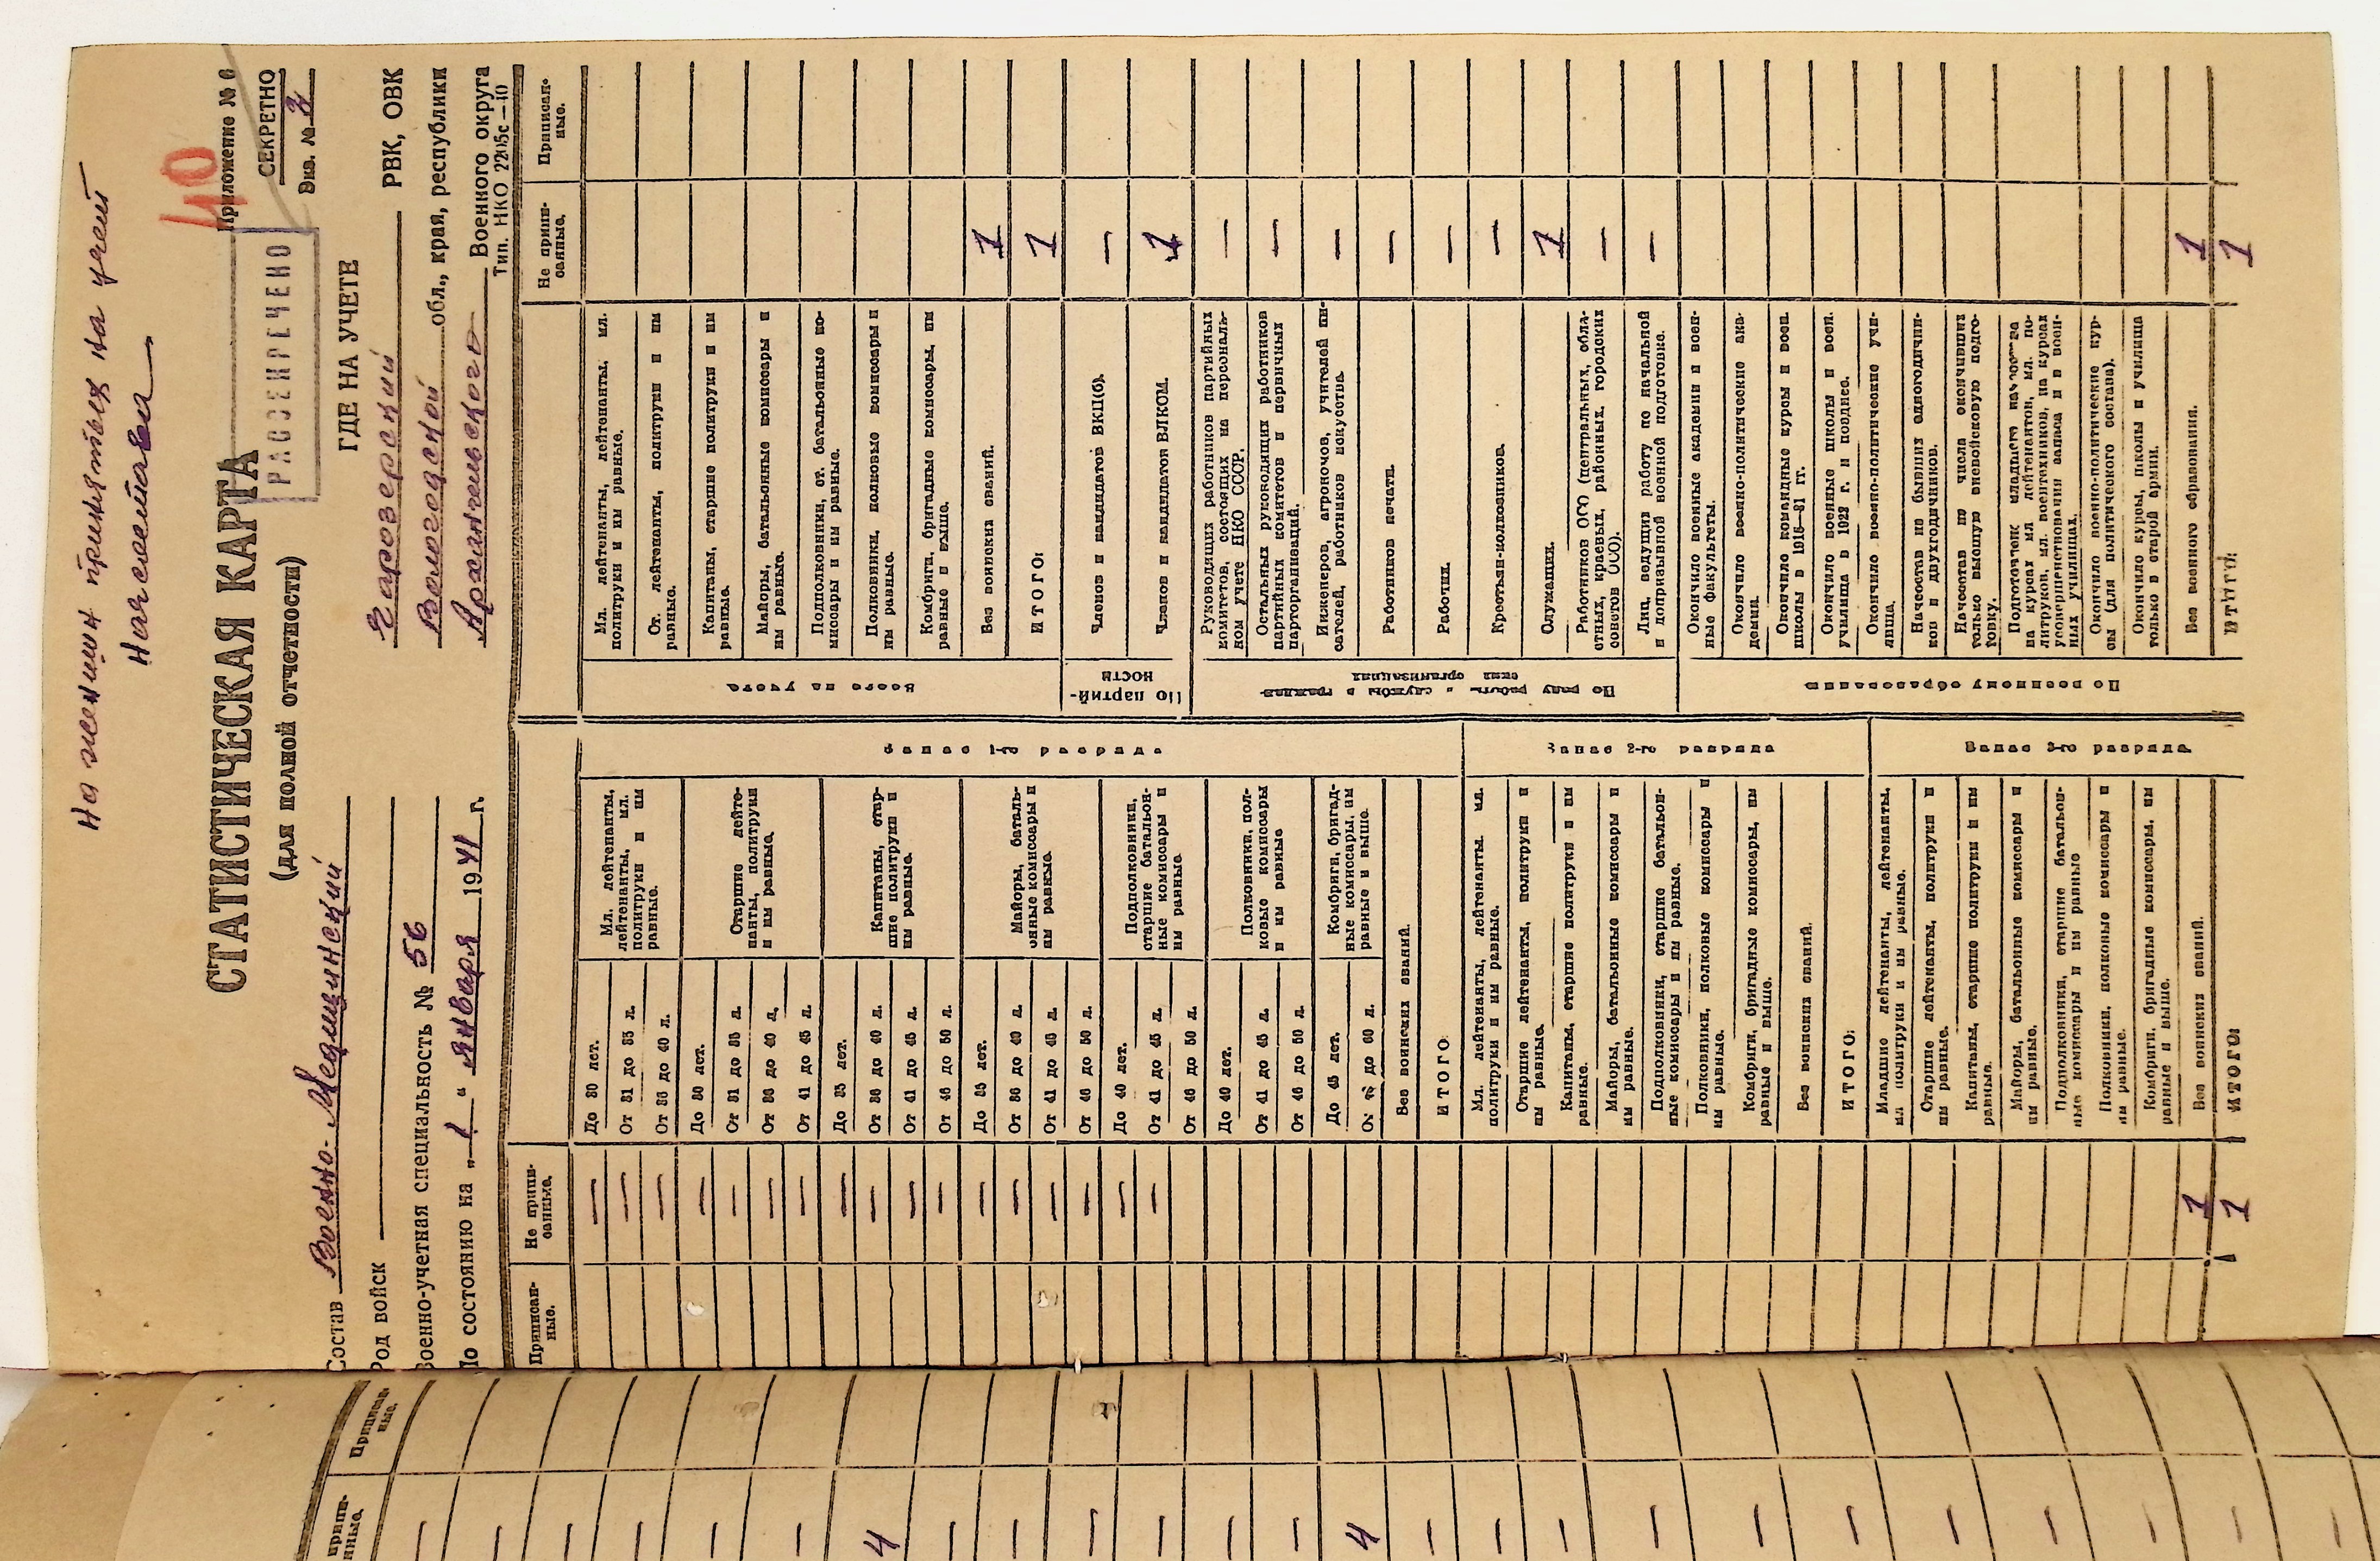 На женщин принятых на учет
Начсостава
40
Приложение № 6
СЕКРЕТНО
Экз. № 3
РАССЕКРЕЧЕНО
СТАТИСТИЧЕСКАЯ КАРТА
(для полной отчетности)
Состав Военно-Медицинский
Род войск
Военно-учетная специальность № 56
По состоянию на „1“ января 1941 г.
ГДЕ НА УЧЕТЕ
Чарозерский РВК, ОВК
Вологодской обл., края, республики
Архангельского Военного округа
Тип. НКО 2205с—40
Приписан-
ные.
Не припи-
санные.
Запас 1-го разряда
Мл. лейтенанты,
лейтенанты, мл.
политруки и им
равные.
До 30 лет. —
От 31 до 35 л. —
От 36 до 40 л. —
Старшие лейте-
нанты, политруки
и им равные.
До 30 лет. —
От 31 до 35 л. —
От 36 до 40 л. —
От 41 до 45 л. —
Капитаны, стар-
шие политруки и
им равные.
До 35 лет. —
От 36 до 40 л. —
От 41 до 45 л. —
От 46 до 50 л. —
Майоры, баталь-
онные комиссары и
им равные.
До 35 лет. —
От 36 до 40 л. —
От 41 до 45 л. —
От 46 до 50 л. —
Подполковники,
старшие батальон-
ные комиссары и
им равные
До 40 лет. —
От 41 до 45 л. —
От 46 до 50 л.
Полковники, пол-
ковые комиссары
и им равные
До 40 лет.
От 41 до 45 л.
От 46 до 50 л.
Комбриги, бригад-
ные комиссары, им
равные и выше.
До 45 лет.
до 60 л.
Без воинских званий.
ИТОГО:
Запас 2-го разряда
Мл. лейтенанты, лейтенанты. мл.
политруки и им равные.
Старшие лейтенанты, политруки и
им равные.
Капитаны, старшие политруки и им
равные.
Майоры, батальонные комиссары и
им равные.
Подполковники, старшие батальон-
ные комиссары и им равные.
Полковники, полковые комиссары и
им равные.
Комбриги, бригадные комиссары, им
равные и выше.
Без воинских званий.
ИТОГО:
Запас 3-го разряда
Младшие лейтенанты, лейтенанты,
мл политруки и им равные.
Старшие лейтенанты, политруки и
им равные.
Капитаны, старшие политруки и им
равные.
Майоры, батальонные комиссары и
им равные.
Подполковники, старшие батальон-
ные комиссары и им равные
Полковники, полковые комиссары и
им равные.
Комбриги, бригадные комиссары, им
равные и выше.
Без воинских званий. 1
ИТОГО: 1
Не припи-
санные.
Приписан-
ные.
Всего на учете
Мл. лейтенанты, лейтенанты, мл.
политруки и им равные.
Ст. лейтенанты, политруки и им
равные.
Капитаны, старшие политруки и им
равные.
Майоры, батальонные комиссары и
им равные.
Подполковники, ст. батальонные ко-
миссары и им равные.
Полковники, полковые комиссары и
им равные.
Комбриги, бригадные комиссары, им
равные и выше.
Без воинских званий. 1
ИТОГО: 1
По партий-
ности
Членов и кандидатов ВКП(б). —
Членов и кандидатов ВЛКСМ. 1
По роду работы и службы в граждан-
ских организациях
Руководящих работников партийных
комитетов, состоящих на персональ-
ном учете НКО СССР. —
Остальных руководящих работников
партийных комитетов и первичных
парторганизаций. —
Инженеров, агрономов, учителей пи-
сателей, работников искусства. —
Работников печати. —
Рабочих. —
Крестьян-колхозников. —
Служащих. 1
Работников ОСО (центральных, обла-
стных, краевых, районных, городских
советов ОСО). —
Лиц, ведущих работу по начальной
и допризывной военной подготовке. —
По военному образованию
Окончило военные академии и воен-
ные факультеты.
Окончило военно-политические ака-
демии.
Окончило командные курсы и воен.
школы в 1918—31 гг.
Окончило военные школы и воен.
училища в г. и позднее.
Окончило военно-политические учи-
лища.
Начсостав из бывших одногодични-
ков и двухгодичников.
Начсостав из числа окончивших
только высшую вневойсковую подго-
товку.
на курсах мл лейтенантов, мл. по-
литруков, мл. воентехников, на курсах
усовершенствования запаса и в воен-
ных училищах.
Окончило военно-политические кур-
сы (для политического состава).
Окончило курсы, школы и училища
только в старой армии.
Без военного образования. 1
ИТОГО: 1
Приписан-
ные.
припи-
нные.
4
4